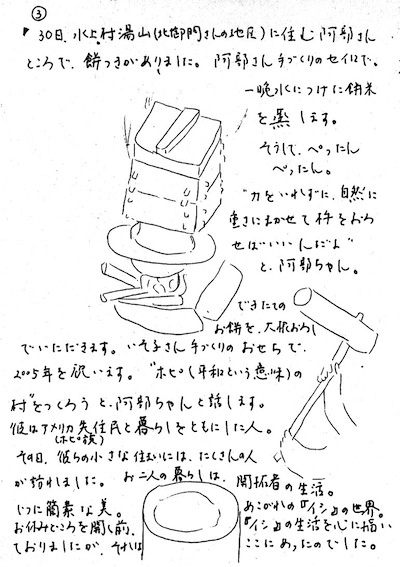 ③
30日、水上村湯山(北御門さんの地区)に住む阿部さん
ところで、餅つきがありました。阿部さん手づくりのセイロで、
一晩水につけた餅米
を蒸します。
そうして、ぺったん
ぺったん。
"力をいれずに、自然に
重さにまかせて杵をおろ
せばいいんだよ"
と、阿部ちゃん。
できたての
お餅を、大根おろし
でいただきます。いそ子さん手づくりのおせちで、
2005年を祝います。"ホピ(平和という意味)の
村"をつくろうと、阿部ちゃんと話します。
彼はアメリカ先住民と暮らしをともにした人。
(ホピ族)
その日、彼らの小さな住まいには、たくさんの人
が訪れました。お二人の暮らしは、開拓者の生活。
じつに簡素な美。
お休みどころを開く前、
ておりましたが、それは
あこがれの『イシ』の世界。
『イシ』の生活を心に描い
ここにあったのでした。